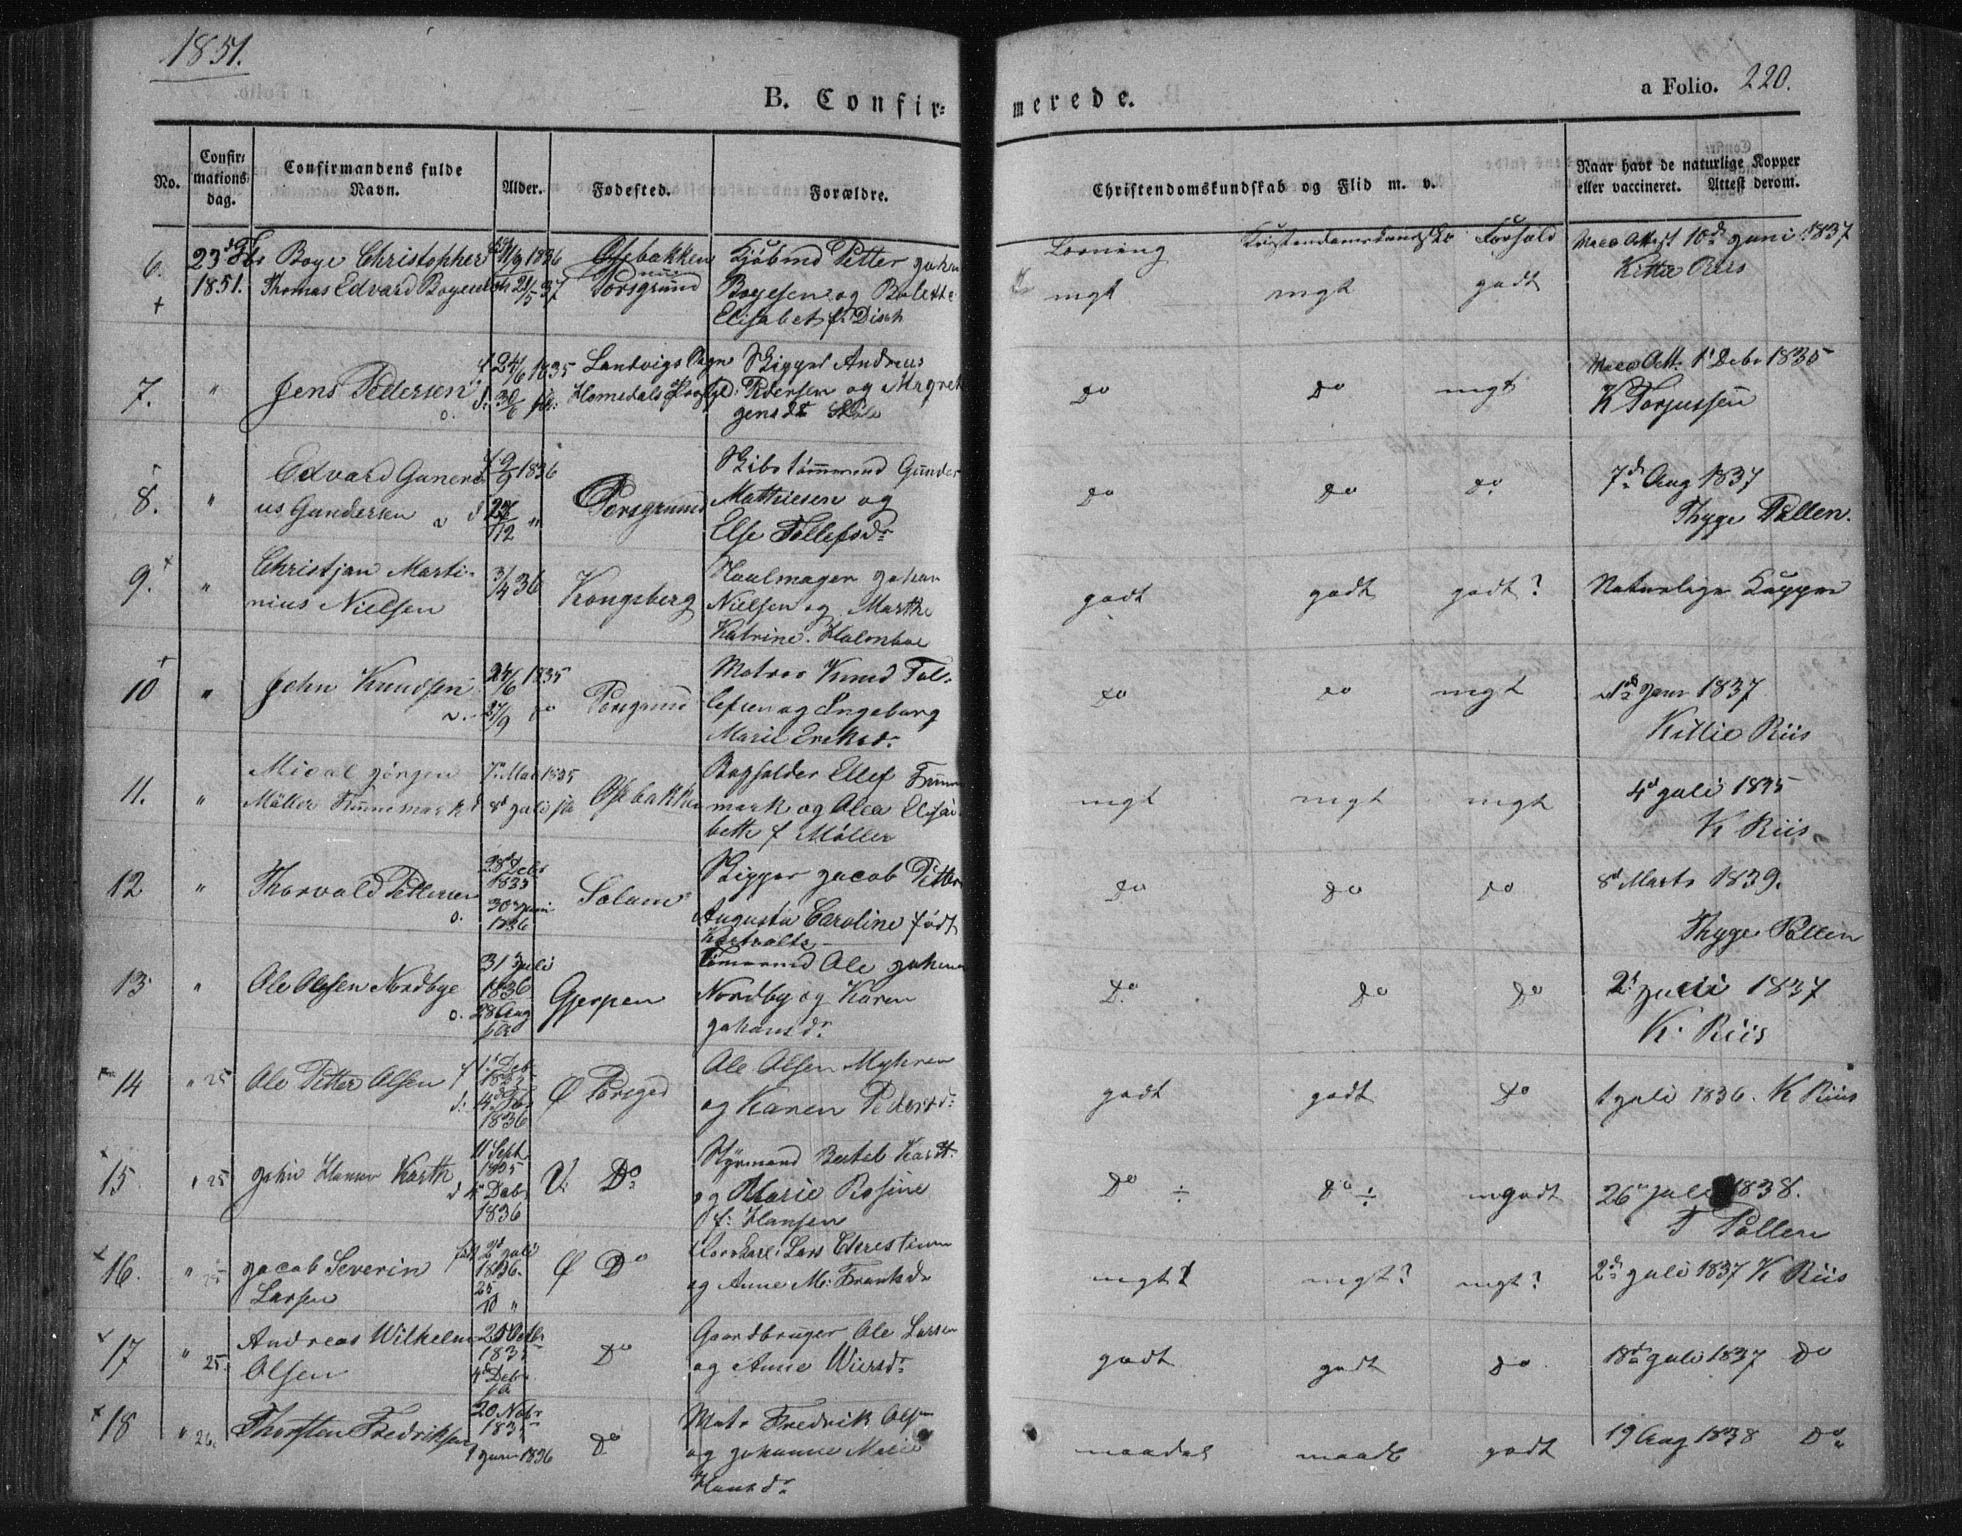 1851.
B. Confirmerede.
a Folio. 220.
No.
Confirmations dag.
Confirmandens fulde Navn.
Alder.
Fødested.
Forældre.
Christendomskundskab og Flid m. v.
Naar havt de naturlige Kopper eller vaccineret. Attest derom.
Lærning Kristendomskundskab Forhold
6. 23d 1851. Boye Christopher Thomas Edvard Boyesen 1836 28/5 37 Osebakken Porsgrund Kjøbmd Petter Johan
Boyesen og Bolette
Elisabet f. Disch
mgt mgt godt
Vacc Attest 10d Juni 1837
Kittie Riis
7. " Jens Pedersen 24/6 1835 Landvigs Sogn Skipper Andreas
Homedals Pedersen og Margret
Do Do mgt
Vacc Att. 1 Debr 1835
K Torjussen
8. " Edvard Gunerius Gundersen 1836 Porsgrund Skibstømmermd Gunder
Mathiesen og
Else Tollefsdr
Do Do Do
7d Aug 1837
Thyge Pallen.
9. " Christjan Martinius Nielsen 3/4 36 Kongsberg Johan
Nielsen og Marthe
Katrine Holmboe
godt godt godt?
Naturlige Kopper
10 " John Knudsen 24/6 1835 27/9 do Porsgrund Matros Knud Tollefsen og Engeborg
Marie Eriksdr
Do Do mgt
Janr 1837
Kittie Riis
11. " Micael Jørgen Möller Frimmark 1835 8d Juli Osebakken Bogholder Ellef Frimmark og Alea Elisabette f Möller
mgt mgt mgt
4d Juli 1835
K Riis
12 " Thorvald Pettersen 28d Debr 1835 30 Juni 1836 Solum Skipper Jacob Petter
Augusta Caroline født
Do Do Do
8d Marts 1839.
Thyge Pallen
13 " Ole Olsen Nordbye 31 Juli 1836 28 Aug Gjerpen Tømmermd Ole Johan
Nordby og Karen
Johansdr
Do Do Do
2d Juni 1837
K. Riis
14 " 25 Ole Petter Olsen 1 Deb 1835 1836 Ø Porsgrd Ole Olsen Myhren
og Karen Pedersdr
godt godt Do
1 Juli 1836. K Riis
15 " 25 John Hansen Karth 11 Sept 1835 4 Debr 1836 V. Do Styrmand Bertel Karth
og Marie Rosine
f. Hansen
Do ÷ Do ÷ mgodt
26 Juli 1838.
T Pallen
16. " 25 Jacob Severin Larsen 2d Juli 1836. 25/10 " Ø Do Lars Christian
og Anne M. Franksdr
mgt? mgt? mgt?
2d Juli 1837 K Riis
17 " 25. Andreas Wilhelm Olsen 25 Octbr 1835 4d Debr Do Gaardbruger Ole Larsen
og Anne Wiersdr
godt godt Do
18d Juli 1837 Do
18 " 26. Thorsten Fredriksen 20 Nobr 1835 1 Janr 1836 Do Matr Fredrik Olsen
og Johanne Marie
Hansdr
maadel maadl godt
19 Aug 1838 Do